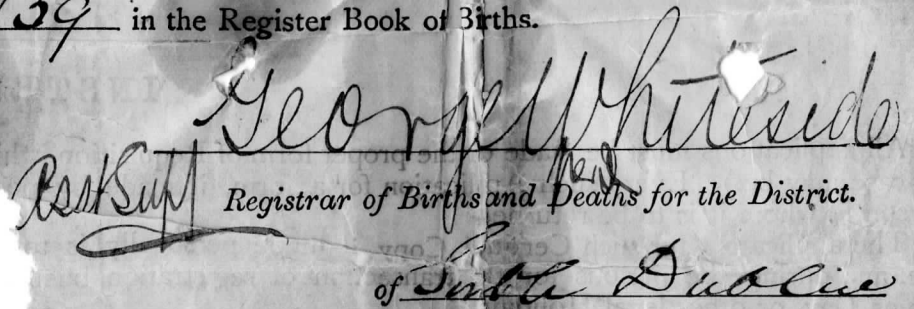 39 in the Register Book of Births.
George Whiteside
Asst Supt Registrar of Births and Deaths for the District.
of South Dublin